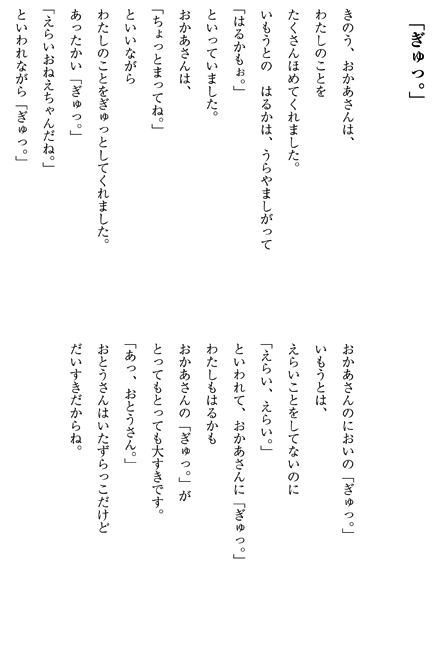 「ぎゅっ。」
きのう、おかあさんは、
わたしのことを
たくさんほめてくれました。
いもうとの　はるかは、うらやましがって
「はるかもぉ。」
といっていました。
おかあさんは、
「ちょっとまってね。」
といいながら
わたしのことをぎゅっとしてくれました。
あったかい「ぎゅっ。」
「えらいおねえちゃんだね。」
といわれながら「ぎゅっ。」
おかあさんのにおいの「ぎゅっ。」
いもうとは、
えらいことをしてないのに
「えらい、えらい。」
といわれて、おかあさんに「ぎゅっ。」
わたしもはるかも
おかあさんの「ぎゅっ。」が
とってもとっても大すきです。
「あっ、おとうさん。」
おとうさんはいたずらっこだけど
だいすきだからね。